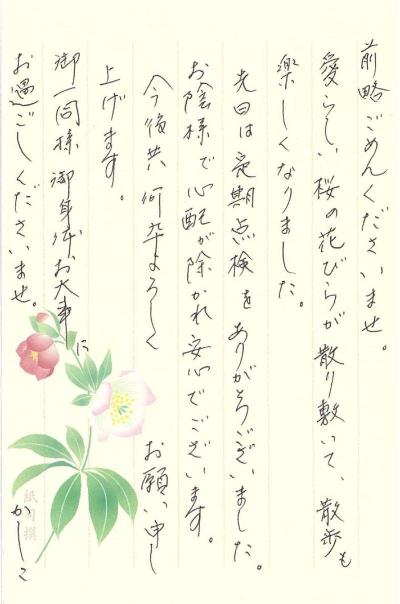 前略ごめんくださいませ。
愛らしい桜の花びらが散り敷いて、散歩も
楽しくなりました。
先日は定期点検をありがとうございました。
お陰様で心配が除かれ安心でございます。
今後共何卒よろしくお願い申し
上げます。
御一同様御身体お大事に
お過ごしくださいませ。
かしこ